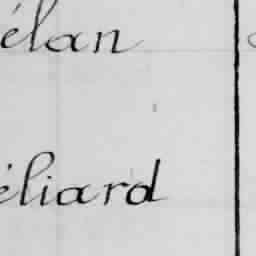 élan
éliard